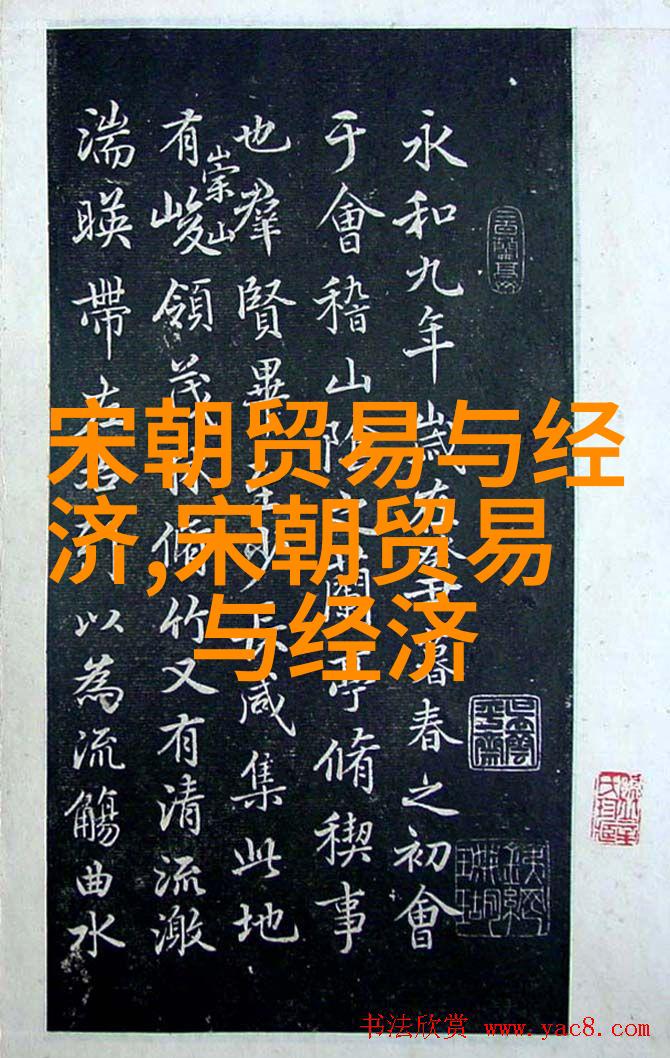 永和九年歲在癸丑暮春之初會
于會稽山陰之蘭亭脩稧事
也羣賢畢至少長咸集此地
有崇山峻領茂林脩竹又有清流激
湍暎帶左右引以為流觴曲水
宋朝贸易与经
济,宋朝贸易
与经济
书法欣赏 www.yac8.com